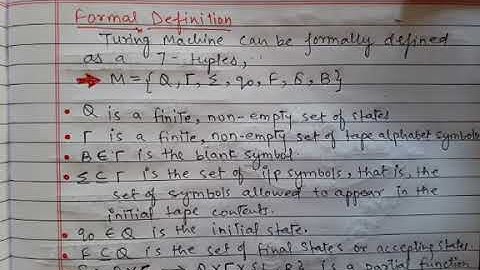 Formal Definition
Turing Machine can be formally defined
as a 7-tuples,
→ M = { Q, Γ, Σ, q₀, F, δ, B }
• Q is a finite, non-empty set of states
• Γ is a finite, non-empty set of tape alphabet symbols
• B ∈ Γ is the blank symbol.
• Σ ⊆ Γ is the set of i/p symbols, that is, the
set of symbols allowed to appear in the
initial tape contents.
• q₀ ∈ Q is the initial state.
• F ⊆ Q is the set of final states or accepting states
is a partial function